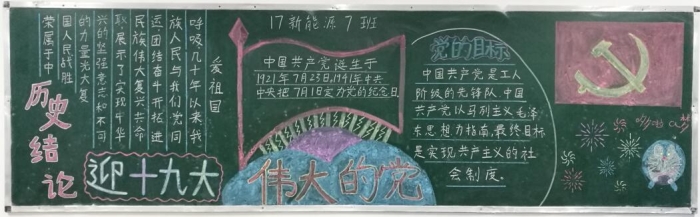 17新能源7班
爱祖国
呼吸几十年以来我
族人民与我们党同
运团结奋斗开拓进
民族伟大复兴共命
取展示了实现中华
兴的坚强意志和不可
的力量光大复
国人民战胜
荣属于中
历史结论
迎十九大
中国共产党诞生于
1921年7月23日,1941年中共
中央把7月1日定为党的纪念日
伟大的党
党的目标
中国共产党是工人
阶级的先锋队.中国
共产党以马列主义毛泽
东思想为指南,最终目标
是实现共产主义的社
会制度.